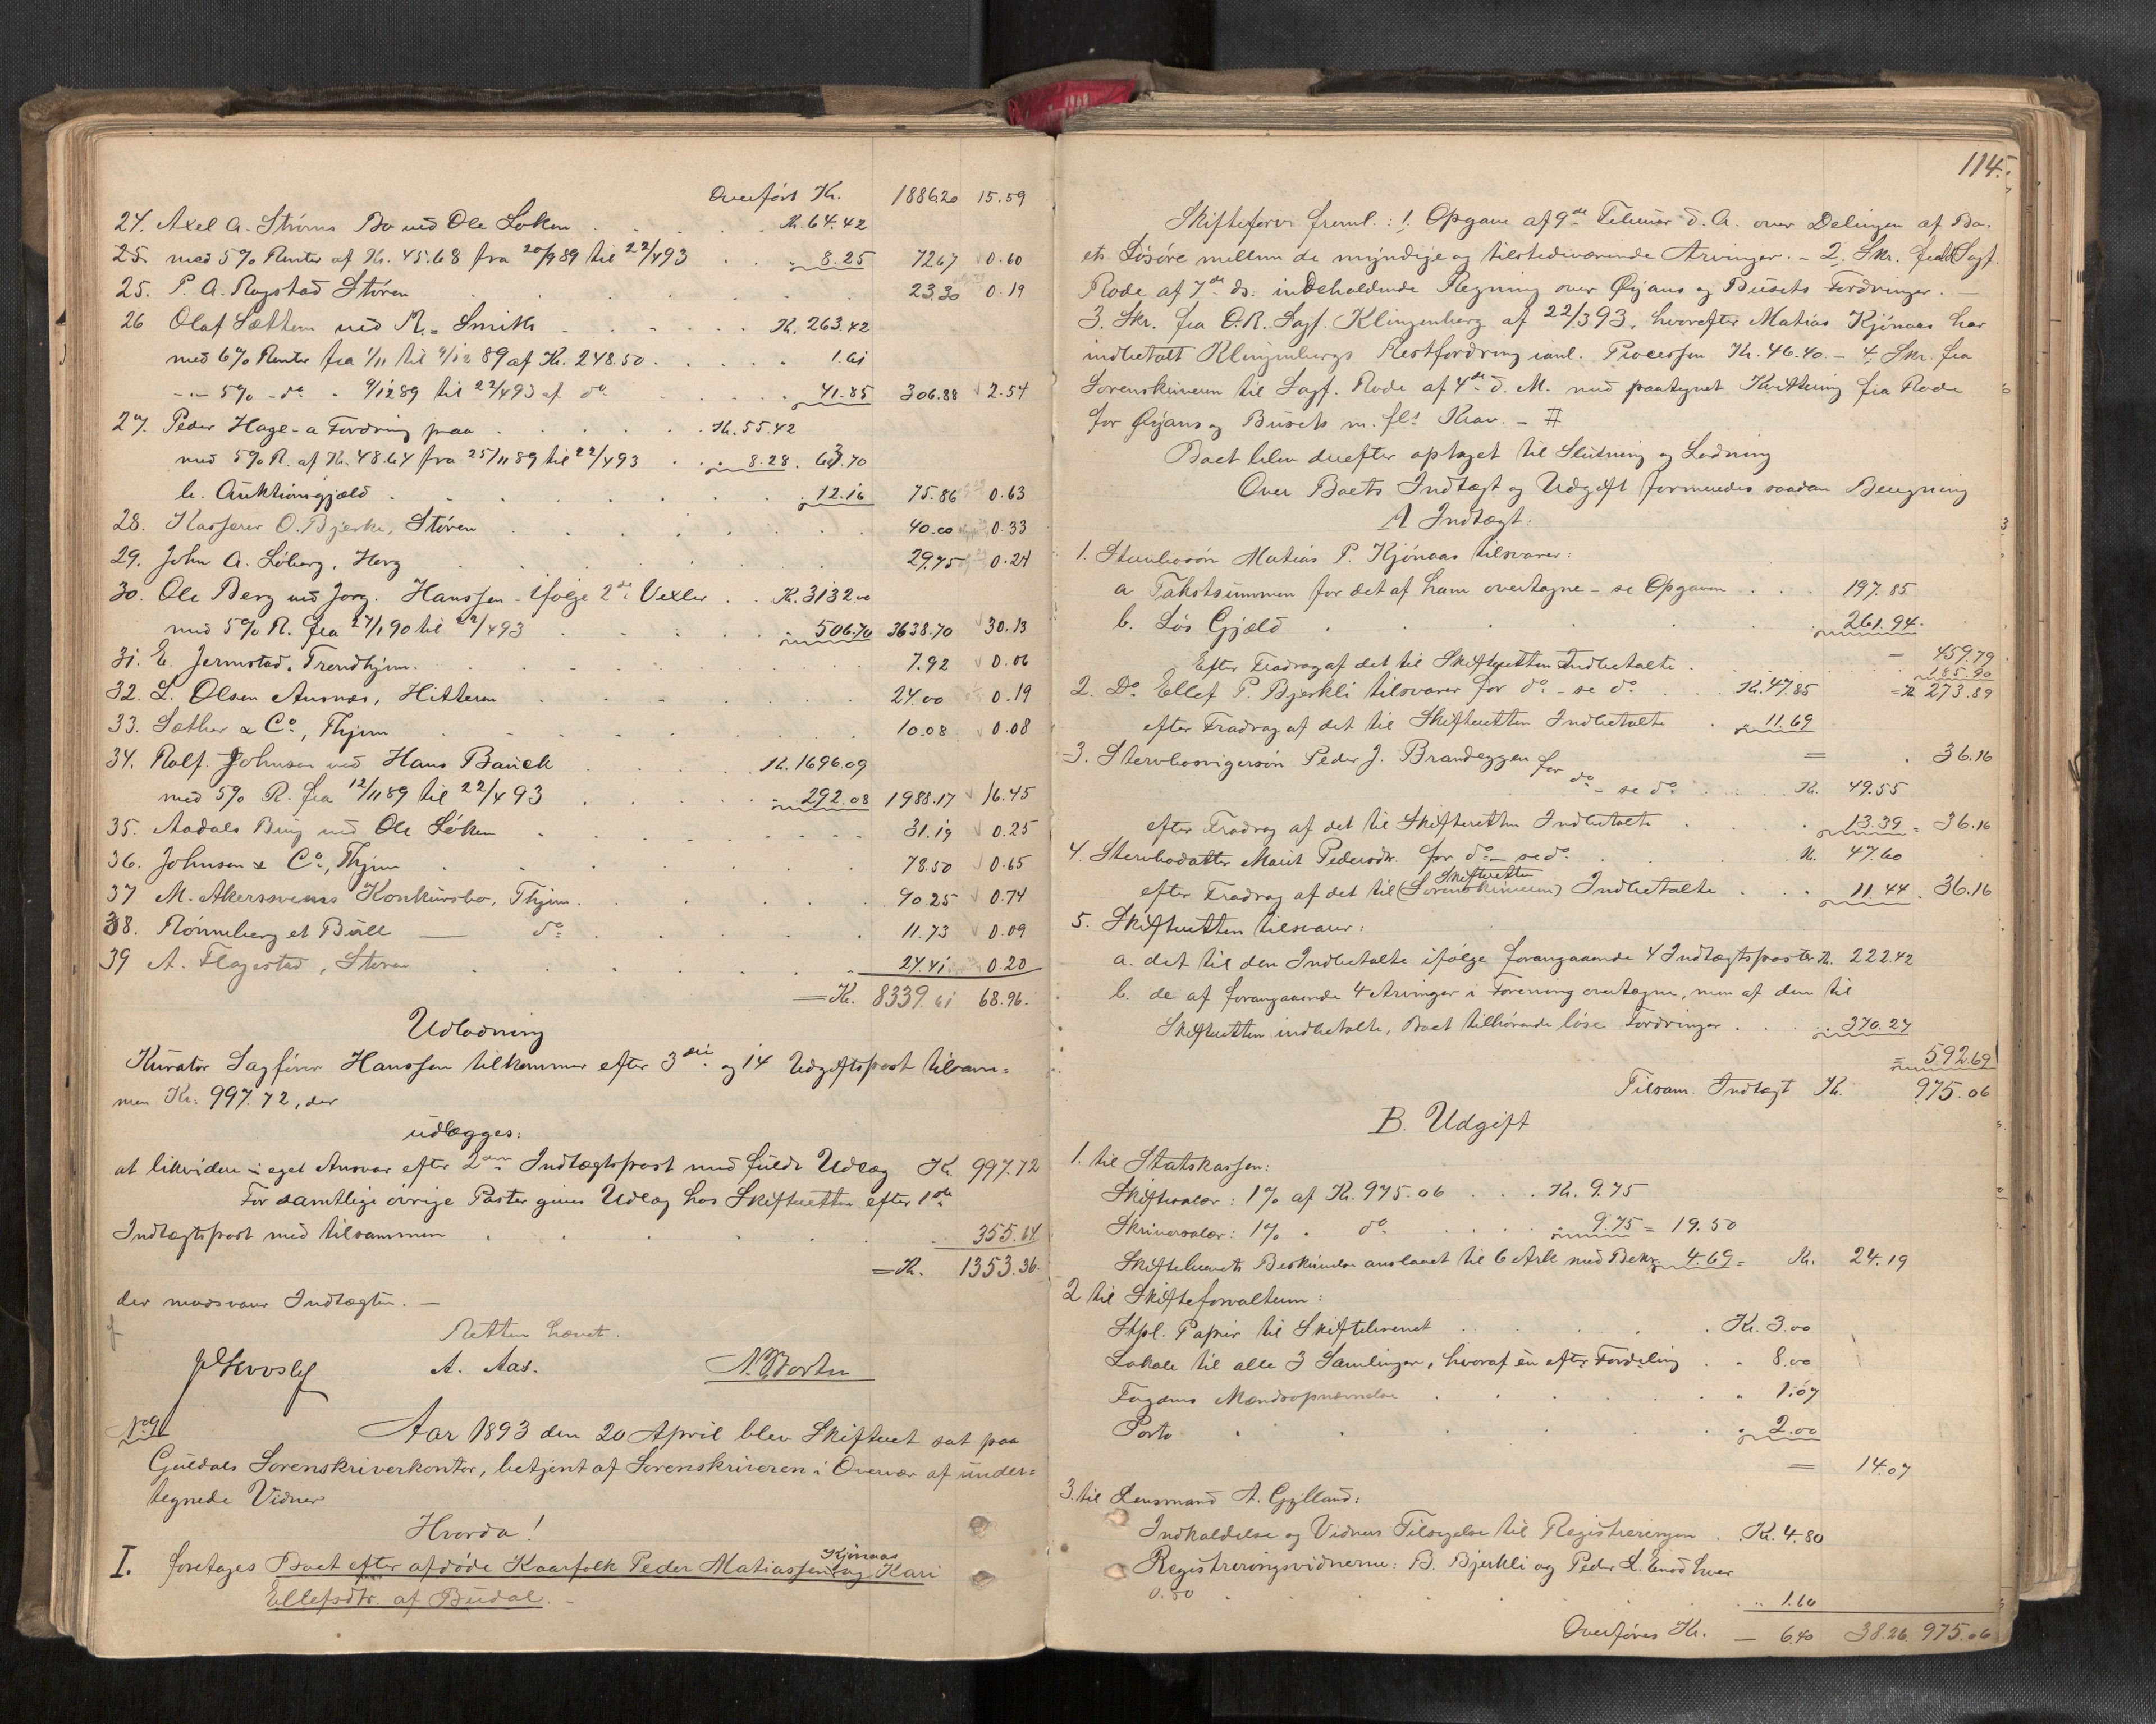 Overført Kr. 1886.20 15.59
24. Axel A. Strøms Bo ved Ole Løken . . . Kr. 64.42
25. med 5% Renter af Kr. 45.68 fra 20/9 89 til 22/4 93 . . 8.25 72.67 0.60
25. P. A. Rogstad Støren . . . 23.30 0.19
26 Olaf Sættem ved R. Smith . . . Kr. 263.42
med 6% Renter fra 1/11 til 9/12 89 af Kr. 248.50 . . . 1.61
-"- 5% - do - 9/12 89 til 22/4 93 af do . . . 41.85 306.88 2.54
27. Peder Hage - a Fordring paa . . . Kr. 55.42
med 5% R. af Kr. 48.64 fra 25/11 89 til 22/4 93 . . 8.28. 63.70
b. Auktionsgjæld . . . 12.16 75.86 0.63
28. Kasserer O. Bjerke, Støren . . . 40.00 0.33
29. John A. Løberg, Horg . . . 29.75 0.24
30. Ole Berg ved Jørg. Hanssen - ifølge 2de Vexler . . Kr. 3132.00
med 5% R. fra 27/1 90 til 22/4 93 . . . 506.70 3638.70 30.13
31. E. Jermstad, Trondhjem. . . . 7.92 0.06
32. L. Olsen Ansnæs, Hitteren . . . 24.00 0.19
33. Sæther & Co., Thjem . . . 10.08 0.08
34. Rolf. Johnsen ved Hans Bauck . . . Kr. 1696.09
med 5% R. fra 12/11 89 til 22/4 93 . . . 292.08 1988.17 16.45
35. Aadals Brug ved Ole Løken . . . 31.19 0.25
36. Johnsen & Co., Thjem . . . 78.50 0.65
37 M. Akersveens Konkursbo, Thjem. . . . 90.25 0.74
38. Rønneberg et Bull — do . . . 11.73 0.09
39 A. Flagestad, Støren . . . 24.41 0.20
= Kr. 8339.61 68.96.
Udlodning
Kurator Sagfører Hanssen tilkommer efter 3die og 14 Udgiftspost tilsam=
men Kr. 997.72, der
udlægges:
at likvidere i eget Ansvar efter 2den Indtægtspost med fuldt Udlæg Kr. 997.72
For samtlige øvrige Poster gives Udlæg hos Skifteretten efter 1ste
Indtægtspost med tilsammen . . . 355.64
= Kr. 1353.36.
der modsvarer Indtægten. —
Retten hævet.
A. Aas.
No 9
Aar 1893 den 20 April blev Skifteret sat paa
Guldals Sorenskriverkontor, betjent af Sorenskriveren i Overvær af under=
tegnede Vidner
Hvorda!
I. foretages Boet efter afdøde Kaarfolk Peder Matiassen Kjønaas og Kari
Ellefsdtr. af Budal. -
114.
Skifteforv. freml.: 1. Opgave af 9de Februar d. A. over Delingen af Bo-
ets Løsøre mellem de myndige og tilstedeværende Arvinger. - 2. Skr. fra Sagf.
Rode af 7de ds. indeholdende Regning over Øyans og Busets Fordringer. —
3. Skr. fra O.R. Sagf. Klingenberg af 22/3 93, hvorefter Matias Kjønaas har
indbetalt Klingenbergs Restfordring ianl. Processen Kr. 46.40. - 4. Skr. fra
Sorenskriveren til Sagf. Rode af 4de d. M. med paategnet Kvittering fra Rode
for Øyans og Busets m. fls Krav. - #
Boet blev derefter optaget til Slutning og Lodning
Over Boets Indtægt og Udgift formeredes saadan Beregning
A Indtægt:
1. Stervbosøn Matias P. Kjønaas tilsvarer:
a Takstsummen for det af ham overtagne - se Opgaven . . . 197.85
b. Løs Gjæld . . . 261.94.
= 459.79
Efter Fradrag af det til Skifteretten Indbetalte . . . 185.90
= Kr 273.89
2. Do. Ellef P. Bjerkli tilsvarer for do - se do . . . Kr. 47.85
efter Fradrag af det til Skifteretten Indbetalte . . 11.69
= . 36.16
3. Stervbosvigersøn Peder J. Brandeggen for do - se do . . . Kr. 49.55
efter Fradrag af det til Skifteretten Indbetalte . . . 13.39 = 36.16
4. Stervbodatter Marit Pedersdtr. for do - se do . . . Kr. 47.60
efter Fradrag af det til (Sorenskriveren) Skifteretten Indbetalte . . . 11.44 . 36.16
5. Skifteretten tilsvarer:
a. det til den Indbetalte ifølge foregaaende 4 Indtægtsposter Kr. 222.42
b. de af foregaaende 4 Arvinger i Forening overtagne, men af dem til
Skifteretten indbetalte, Boet tilhørende løse Fordringer . . . 370.27
= 592.69
Tilsam. Indtægt Kr. 975.06
B. Udgift
1. til Statskassen:
Skiftesalær: 1% af Kr. 975.06 . . . Kr. 9.75
Skriversalær: 1% . do . . . 9.75 = 19.50
Skiftebrevets Beskrivelse anslaaet til 6 Ark med Bekr. 4.69 = Kr. 24.19
2 til Skifteforvalteren:
Stpl. Papir til Skiftebrevet . . . Kr. 3.00
Lokale til alle 3 Samlinger, hvoraf én efter Fordeling . . 8.00
Fogdens Mændsopnævnelse . . . 1.07
Porto . . . 2.00
= 14.07
3. til Lensmand A. Gylland:
Indkaldelse og Vidners Tilsigelse til Registreringen . Kr. 4.80
Registreringsvidnerne: B. Bjerkli og Peder L. Enod hver
0.80 . . . 1.60
Overføres Kr. — 6.40 38.26 975.06